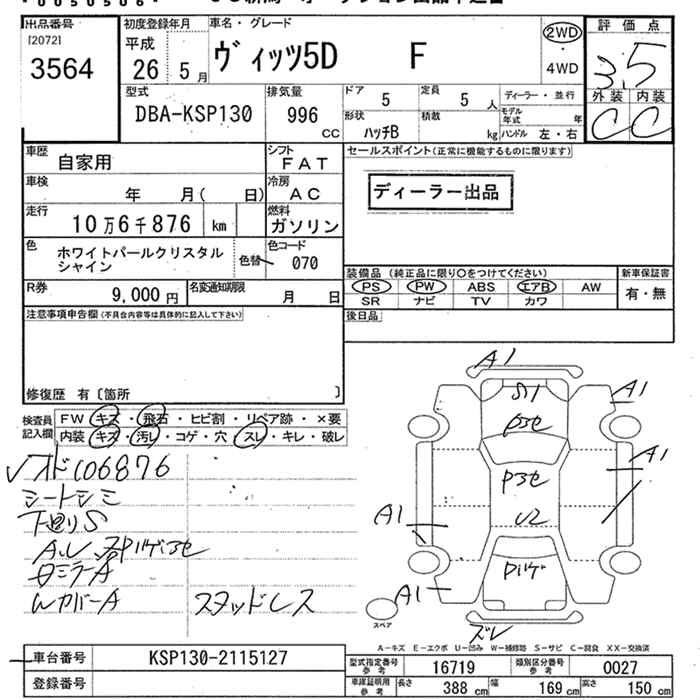 出品番号
[2072]
3564
初度登録年月
平成
26 5月
車名・グレード
ヴィッツ5D F
2WD
・
4WD
評価点
3.5
外装 内装
C C
型式
DBA-KSP130
排気量
996
CC
ドア 5
定員 5人
ディーラー・並行
形状 ハッチB
積載 kg
モデル年式 年
ハンドル 左・右
車歴
自家用
シフト
FAT
車検
年 月( 日)
冷房
AC
走行
10万6千876 km
燃料
ガソリン
色
ホワイトパールクリスタル
シャイン
色替
色コード
070
R券
9,000円
名変通知期限
月 日
セールスポイント(正常に機能するものに限ります)
ディーラー出品
装備品(純正品に限り○をつけてください)
PS PW ABS エアB AW
SR ナビ TV カワ
新車保証書
有・無
後日品
注意事項申告欄(不具合内容等は具体的に記入して下さい)
修復歴 有〔箇所 〕
検査員
記入欄
FW キズ・飛石・ヒビ割・リペア跡・×要
内装 キズ・汚レ・コゲ・穴・スレ・キレ・破レ
シートシミ
下回りS
ミラーA
WカバーA
スタッドレス
A1
S1
A1
A1
U2
A1
A1
ズレ
スペア
A-キズ E-エクボ U-凹み W-補修跡 S-サビ C-腐食 XX-交換済
車台番号 KSP130-2115127
登録番号
型式指定番号
参考
16719
類別区分番号
参考
0027
車庫証明用
参考
長さ 388 cm
幅 169 cm
高さ 150 cm